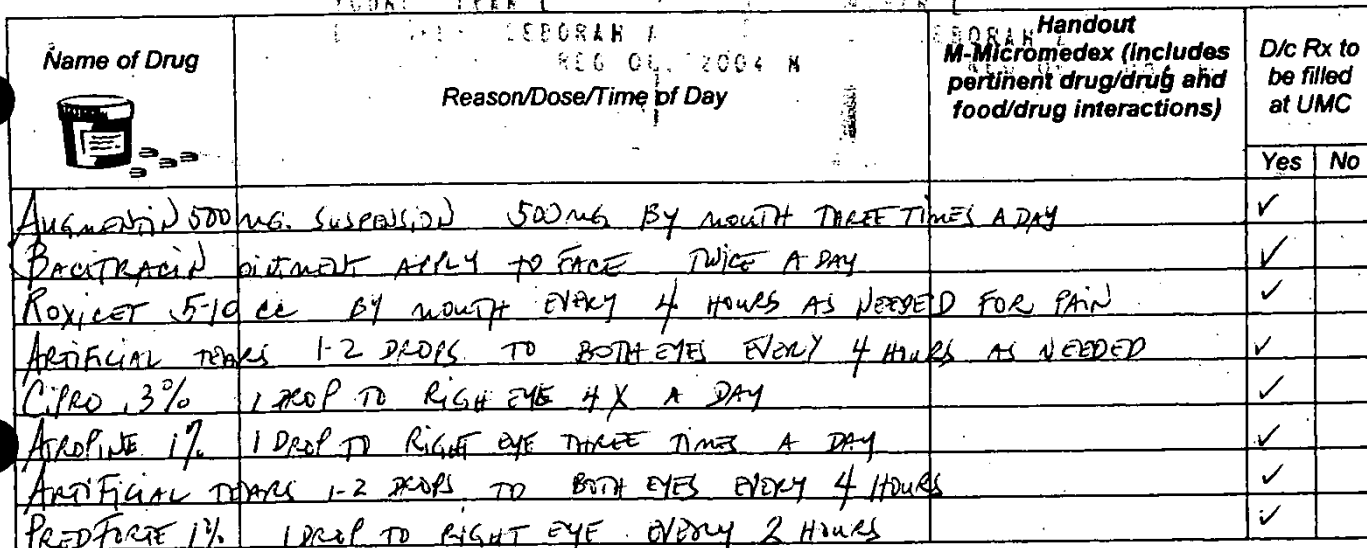 DEBORAH A
REG 2004 M
Name of Drug
Reason/Dose/Time of Day
Handout
M-Micromedex (Includes
pertinent drug/drug and
food/drug interactions)
D/c Rx to
be filled
at UMC
Yes No
AUGMENTIN 500 MG. SUSPENSION 500 MG BY MOUTH THREE TIMES A DAY ✓
BACITRACIN OINTMENT APPLY TO FACE TWICE A DAY ✓
ROXICET 5-10 cc BY MOUTH EVERY 4 HOURS AS NEEDED FOR PAIN ✓
ARTIFICIAL TEARS 1-2 DROPS TO BOTH EYES EVERY 4 HOURS AS NEEDED ✓
CIPRO .3% 1 DROP TO RIGHT EYE 4 X A DAY ✓
ATROPINE 1% 1 DROP TO RIGHT EYE THREE TIMES A DAY ✓
ARTIFICIAL TEARS 1-2 DROPS TO BOTH EYES EVERY 4 HOURS ✓
PRED FORTE 1% 1 DROP TO RIGHT EYE EVERY 2 HOURS ✓